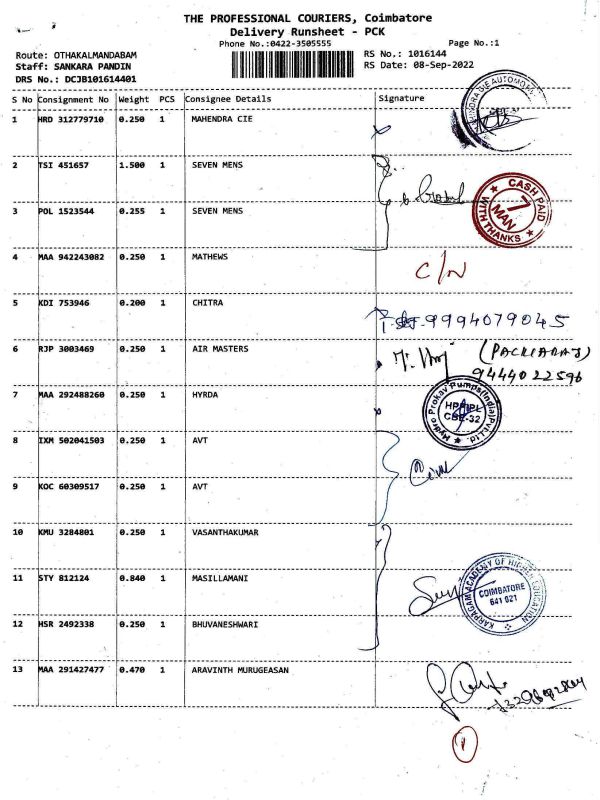 THE PROFESSIONAL COURIERS, Coimbatore
Delivery Runsheet - PCK
Phone No.:0422-3505555 Page No.:1
Route: OTHAKALMANDABAM RS No.: 1016144
Staff: SANKARA PANDIN RS Date: 08-Sep-2022
DRS No.: DCJB101614401
S No Consignment No Weight PCS Consignee Details Signature
1 HRD 312779710 0.250 1 MAHENDRA CIE
2 TSI 451657 1.500 1 SEVEN MENS
CASH PAID
7
MAN
WITH THANKS
3 POL 1523544 0.255 1 SEVEN MENS
4 MAA 942243082 0.250 1 MATHEWS C/N
5 KDI 753946 0.200 1 CHITRA 9994079045
6 RJP 3003469 0.250 1 AIR MASTERS (PACKIARAJ)
9444022596
7 MAA 292488260 0.250 1 HYRDA
Hydro Prokav Pumps(India)Pvt.Ltd.
HPPIPL
CBE-32
8 IXM 502041503 0.250 1 AVT
9 KOC 60309517 0.250 1 AVT
10 KMU 3284801 0.250 1 VASANTHAKUMAR
11 STY 812124 0.840 1 MASILLAMANI
KARPAGAM ACADEMY OF HIGHER EDUCATION
COIMBATORE
641 021
12 HSR 2492338 0.250 1 BHUVANESHWARI
13 MAA 291427477 0.470 1 ARAVINTH MURUGEASAN